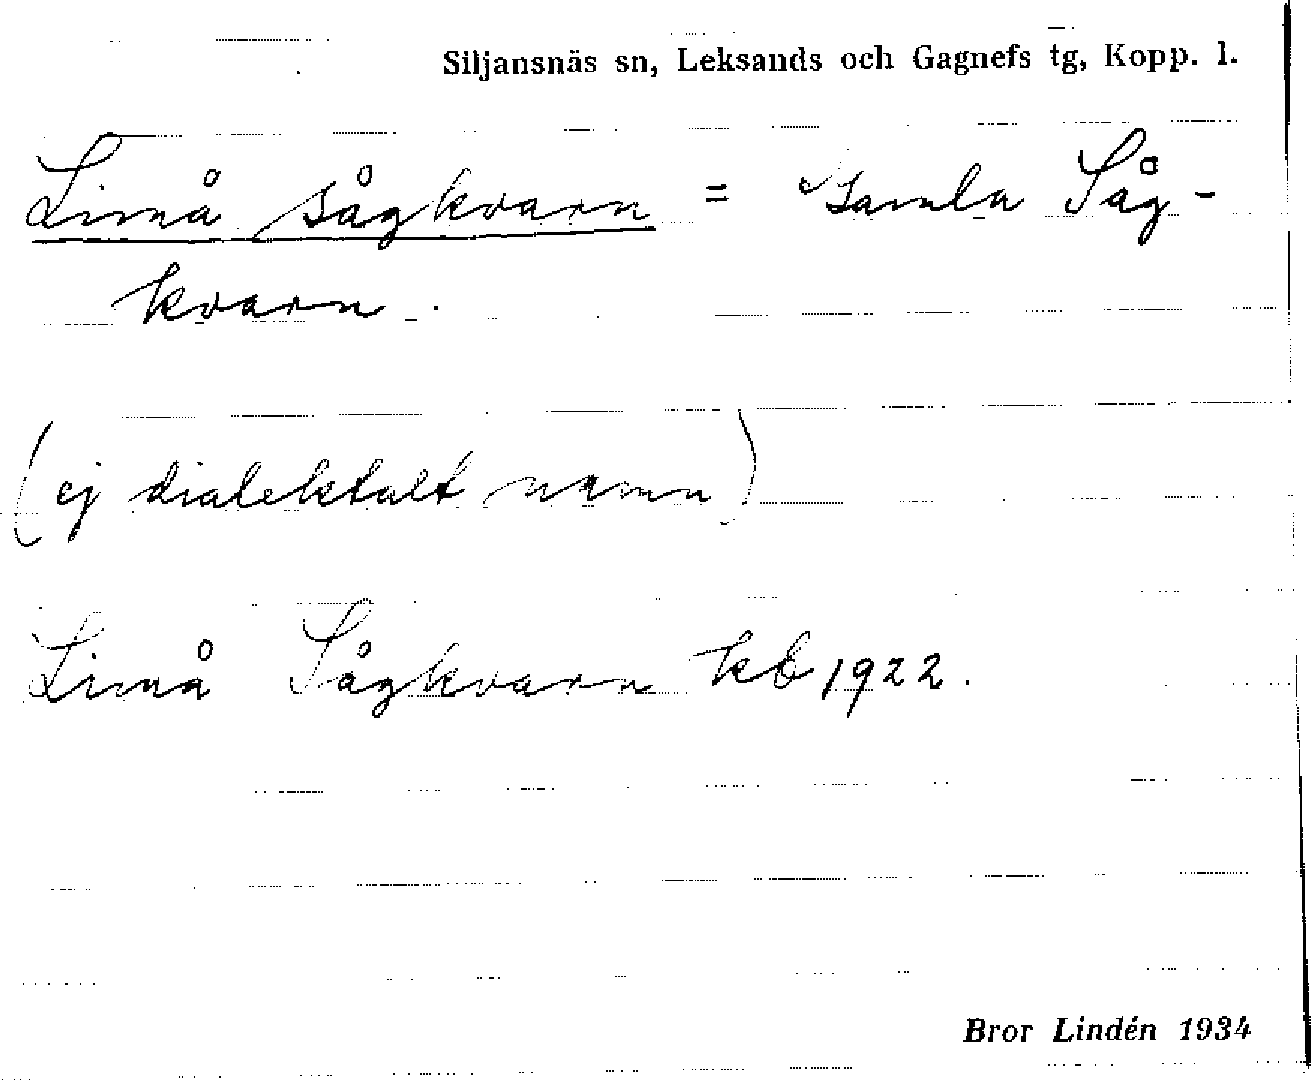 Siljansnäs sn, Leksands och Gagnefs tg, Kopp. l.
Limå sågkvarn = Gamla Såg-
kvarn.
(ej dialektalt namn)
Limå Sågkvarn kb 1922.
Bror Lindén 1934